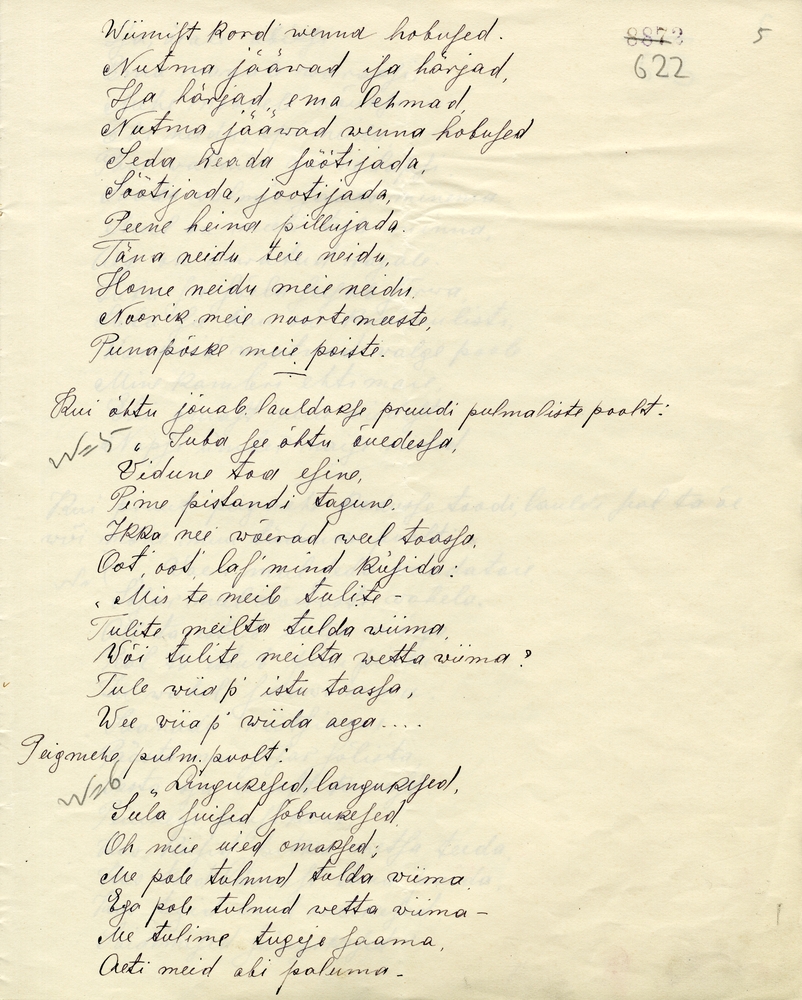 8873 5
622
Wiimist kord wenna hobused.
Nutma jääwad isa härjad,
Isa härjad, ema lehmad,
Nutma jääwad wenna hobused
Seda heada söötijada,
Söötijada, jootijada,
Peene heina pillujada.
Täna neidu teie neidu,
Home neidu meie neidu.
Noorik meie noortemeeste,
Punapõske meie poiste.
Kui õhtu jõuab lauldakse pruudi pulmaliste poolt:
N=5 „Juba see õhtu õuedessa,
Vidune toa esine,
Pime pistandi tagune.
Ikka nee wõerad weel toassa.
Oot', oot', las' mind küsida:
„Mis te meile tulite –
Tulite meilta tulda wiima,
Wõi tulite meilta wetta wiima?
Tule wiiap' istu toassa,
Wee viiap' wiida aega....
Peigmehe pulm. poolt:
N=6 „Lingukesed, langukesed,
Sula suised sõbrukesed
Oh meie uied omaksed;
Me pole tulnud tulda wiima,
Ega pole tulnud wetta wiima –
Me tulime tugeje saama,
Aeti meid abi paluma –